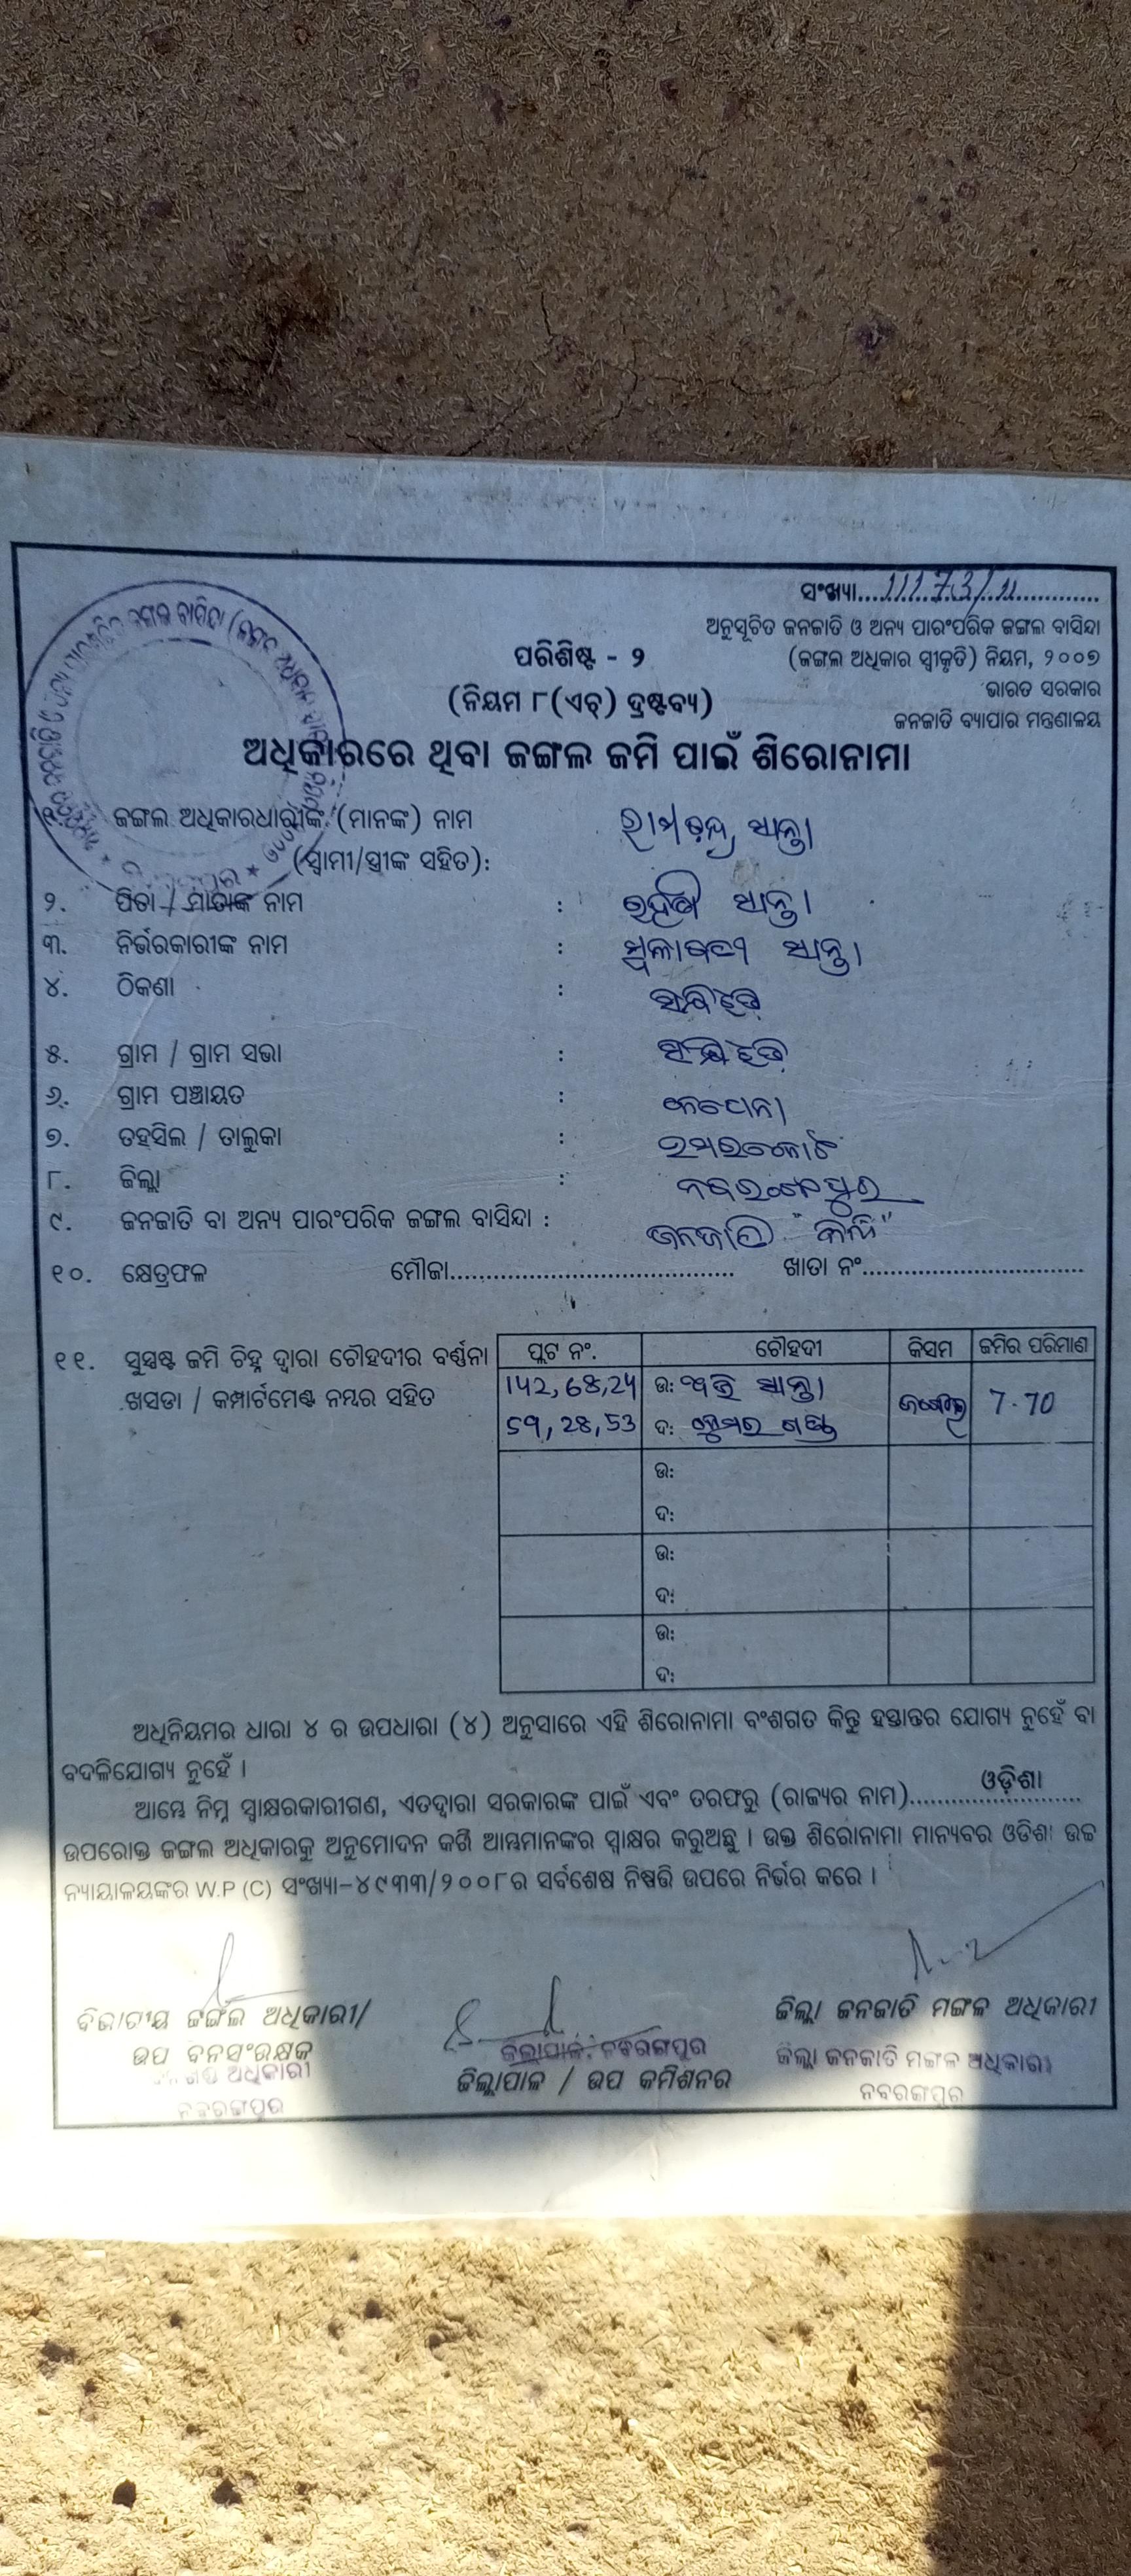 ସଂଖ୍ୟା....11173/11....
ଅନୁସୂଚିତ ଜନଜାତି ଓ ଅନ୍ୟ ପାରଂପରିକ ଜଙ୍ଗଲ ବାସିନ୍ଦା
ପରିଶିଷ୍ଟ - ୨
(ଜଙ୍ଗଲ ଅଧିକାର ସ୍ୱୀକୃତି) ନିୟମ, ୨୦୦୭
ଭାରତ ସରକାର
(ନିୟମ ୮(ଏଚ୍) ଦ୍ରଷ୍ଟବ୍ୟ)
ଜନଜାତି ବ୍ୟାପାର ମନ୍ତ୍ରଣାଳୟ
ଅଧିକାରରେ ଥିବା ଜଙ୍ଗଲ ଜମି ପାଇଁ ଶିରୋନାମା
ଜଙ୍ଗଲ ଅଧିକାରଧାରୀଙ୍କ (ମାନଙ୍କ) ନାମ ରାମଚନ୍ଦ୍ର ସାନ୍ତା
(ସ୍ୱାମୀ/ସ୍ତ୍ରୀଙ୍କ ସହିତ):
୨. ପିତା / ମାତାଙ୍କ ନାମ : ସାନ୍ତା
୩. ନିର୍ଭରକାରୀଙ୍କ ନାମ : ସାନ୍ତା
୪. ଠିକଣା :
୫. ଗ୍ରାମ / ଗ୍ରାମ ସଭା :
୬. ଗ୍ରାମ ପଞ୍ଚାୟତ :
୭. ତହସିଲ / ତାଲୁକା : ଉମରକୋଟ
୮. ଜିଲ୍ଲା : ନବରଂଗପୁର
୯. ଜନଜାତି ବା ଅନ୍ୟ ପାରଂପରିକ ଜଙ୍ଗଲ ବାସିନ୍ଦା : ଜନଜାତି
୧୦. କ୍ଷେତ୍ରଫଳ ମୌଜା........ ଖାତା ନଂ........
୧୧. ସୁସ୍ପଷ୍ଟ ଜମି ଚିହ୍ନ ଦ୍ୱାରା ଚୌହଦୀର ବର୍ଣ୍ଣନା
ଖସଡା / କମ୍ପାର୍ଟମେଣ୍ଟ ନମ୍ବର ସହିତ
ପ୍ଲଟ ନଂ. ଚୌହଦୀ କିସମ ଜମିର ପରିମାଣ
142, 68, 24 ଉ: ସାନ୍ତା
59, 28, 53 ଦ: 7.70
ଉ:
ଦ:
ଉ:
ଦ:
ଉ:
ଦ:
ଅଧିନିୟମର ଧାରା ୪ ର ଉପଧାରା (୪) ଅନୁସାରେ ଏହି ଶିରୋନାମା ବଂଶଗତ କିନ୍ତୁ ହସ୍ତାନ୍ତର ଯୋଗ୍ୟ ନୁହେଁ ବା
ବଦଳିଯୋଗ୍ୟ ନୁହେଁ ।
ଆମ୍ଭେ ନିମ୍ନ ସ୍ୱାକ୍ଷରକାରୀଗଣ, ଏତଦ୍ୱାରା ସରକାରଙ୍କ ପାଇଁ ଏବଂ ତରଫରୁ (ରାଜ୍ୟର ନାମ)....ଓଡ଼ିଶା....
ଉପରୋକ୍ତ ଜଙ୍ଗଲ ଅଧିକାରକୁ ଅନୁମୋଦନ କରି ଆମ୍ଭମାନଙ୍କର ସ୍ୱାକ୍ଷର କରୁଅଛୁ । ଉକ୍ତ ଶିରୋନାମା ମାନ୍ୟବର ଓଡିଶା ଉଚ୍ଚ
ନ୍ୟାୟାଳୟଙ୍କର W.P (C) ସଂଖ୍ୟା-୪୯୩୩/୨୦୦୮ର ସର୍ବଶେଷ ନିଷ୍ପତ୍ତି ଉପରେ ନିର୍ଭର କରେ ।
ବିଭାଗୀୟ ଜଙ୍ଗଲ ଅଧିକାରୀ/
ଉପ ବନସଂରକ୍ଷକ
ଅଧିକାରୀ
ନବରଙ୍ଗପୁର
ଜିଲ୍ଲାପାଳ, ନବରଙ୍ଗପୁର
ଜିଲ୍ଲାପାଳ / ଉପ କମିଶନର
ଜିଲ୍ଲା ଜନଜାତି ମଙ୍ଗଳ ଅଧିକାରୀ
ଜିଲ୍ଲା ଜନଜାତି ମଙ୍ଗଳ ଅଧିକାରୀ
ନବରଙ୍ଗପୁର